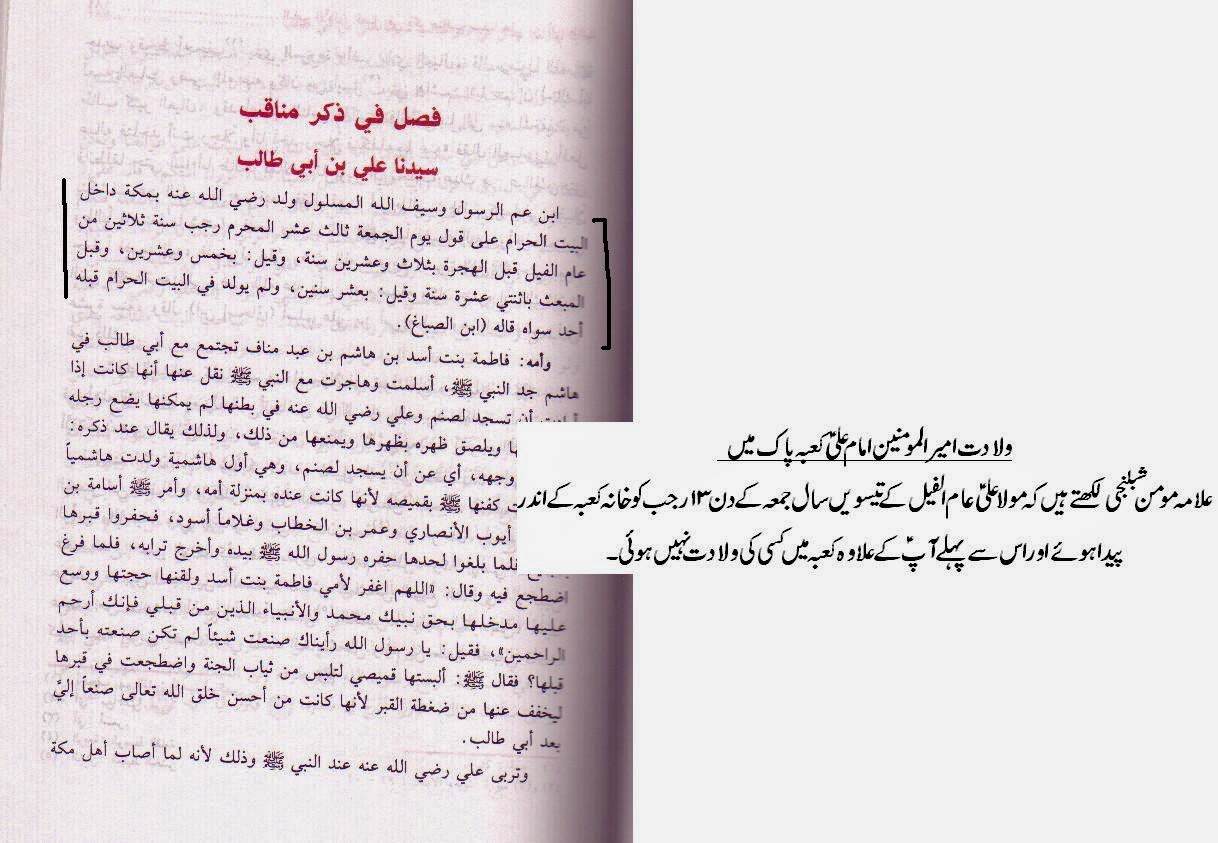 فصل في ذكر مناقب
سيدنا علي بن أبي طالب
ابن عم الرسول وسيف الله المسلول ولد رضي الله عنه بمكة داخل
البيت الحرام على قول يوم الجمعة ثالث عشر المحرم رجب سنة ثلاثين من
عام الفيل قبل الهجرة بثلاث وعشرين سنة، وقيل: بخمس وعشرين، وقبل
المبعث باثنتي عشرة سنة وقيل: بعشر سنين، ولم يولد في البيت الحرام قبله
أحد سواه قاله (ابن الصباغ).
وأمه: فاطمة بنت أسد بن هاشم بن عبد مناف تجتمع مع أبي طالب في
هاشم جد النبي ﷺ، أسلمت وهاجرت مع النبي ﷺ نقل عنها أنها كانت إذا
أن تسجد لصنم وعلي رضي الله عنه في بطنها لم يمكنها يضع رجله
ويلصق ظهره بظهرها ويمنعها من ذلك، ولذلك يقال عند ذكره:
وجهه، أي عن أن يسجد لصنم، وهي أول هاشمية ولدت هاشمياً
كفنها ﷺ بقميصه لأنها كانت عنده بمنزلة أمه، وأمر ﷺ أسامة بن
أيوب الأنصاري وعمر بن الخطاب وغلاماً أسود، فحفروا قبرها
فلما بلغوا لحدها حفره رسول الله ﷺ بيده وأخرج ترابه، فلما فرغ
اضطجع فيه وقال: «اللهم اغفر لأمي فاطمة بنت أسد ولقنها حجتها ووسع
عليها مدخلها بحق نبيك محمد والأنبياء الذين من قبلي فإنك أرحم
الراحمين»، فقيل: يا رسول الله رأيناك صنعت شيئاً لم تكن صنعته بأحد
قبلها؟ فقال ﷺ: ألبستها قميصي لتلبس من ثياب الجنة واضطجعت في قبرها
ليخفف عنها من ضغطة القبر لأنها كانت من أحسن خلق الله تعالى صنعاً إليَّ
بعد أبي طالب.
وتربى علي رضي الله عنه عند النبي ﷺ وذلك لأنه لما أصاب أهل مكة
ولادت امیر المومنین امام علیؑ کعبہ پاک میں
علامہ مومن شبلنجی لکھتے ہیں کہ مولا علیؑ عام الفیل کے تیسویں سال جمعہ کے دن ۱۳ رجب کو خانہ کعبہ کے اندر
پیدا ہوئے اور اس سے پہلے آپؑ کے علاوہ کعبہ میں کسی کی ولادت نہیں ہوئی۔